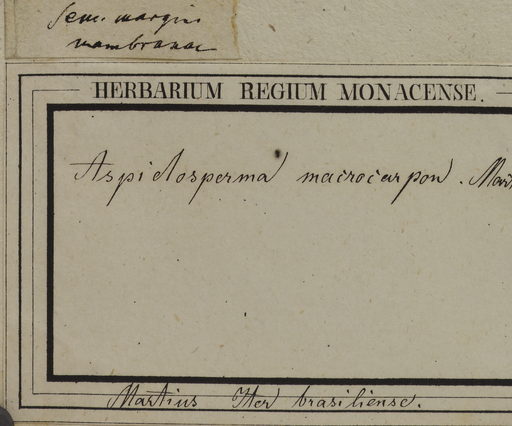 Sem. margine
membranac
HERBARIUM REGIUM MONACENSE.
Aspidosperma macrocarpon. Mart
Martius Iter brasiliense.